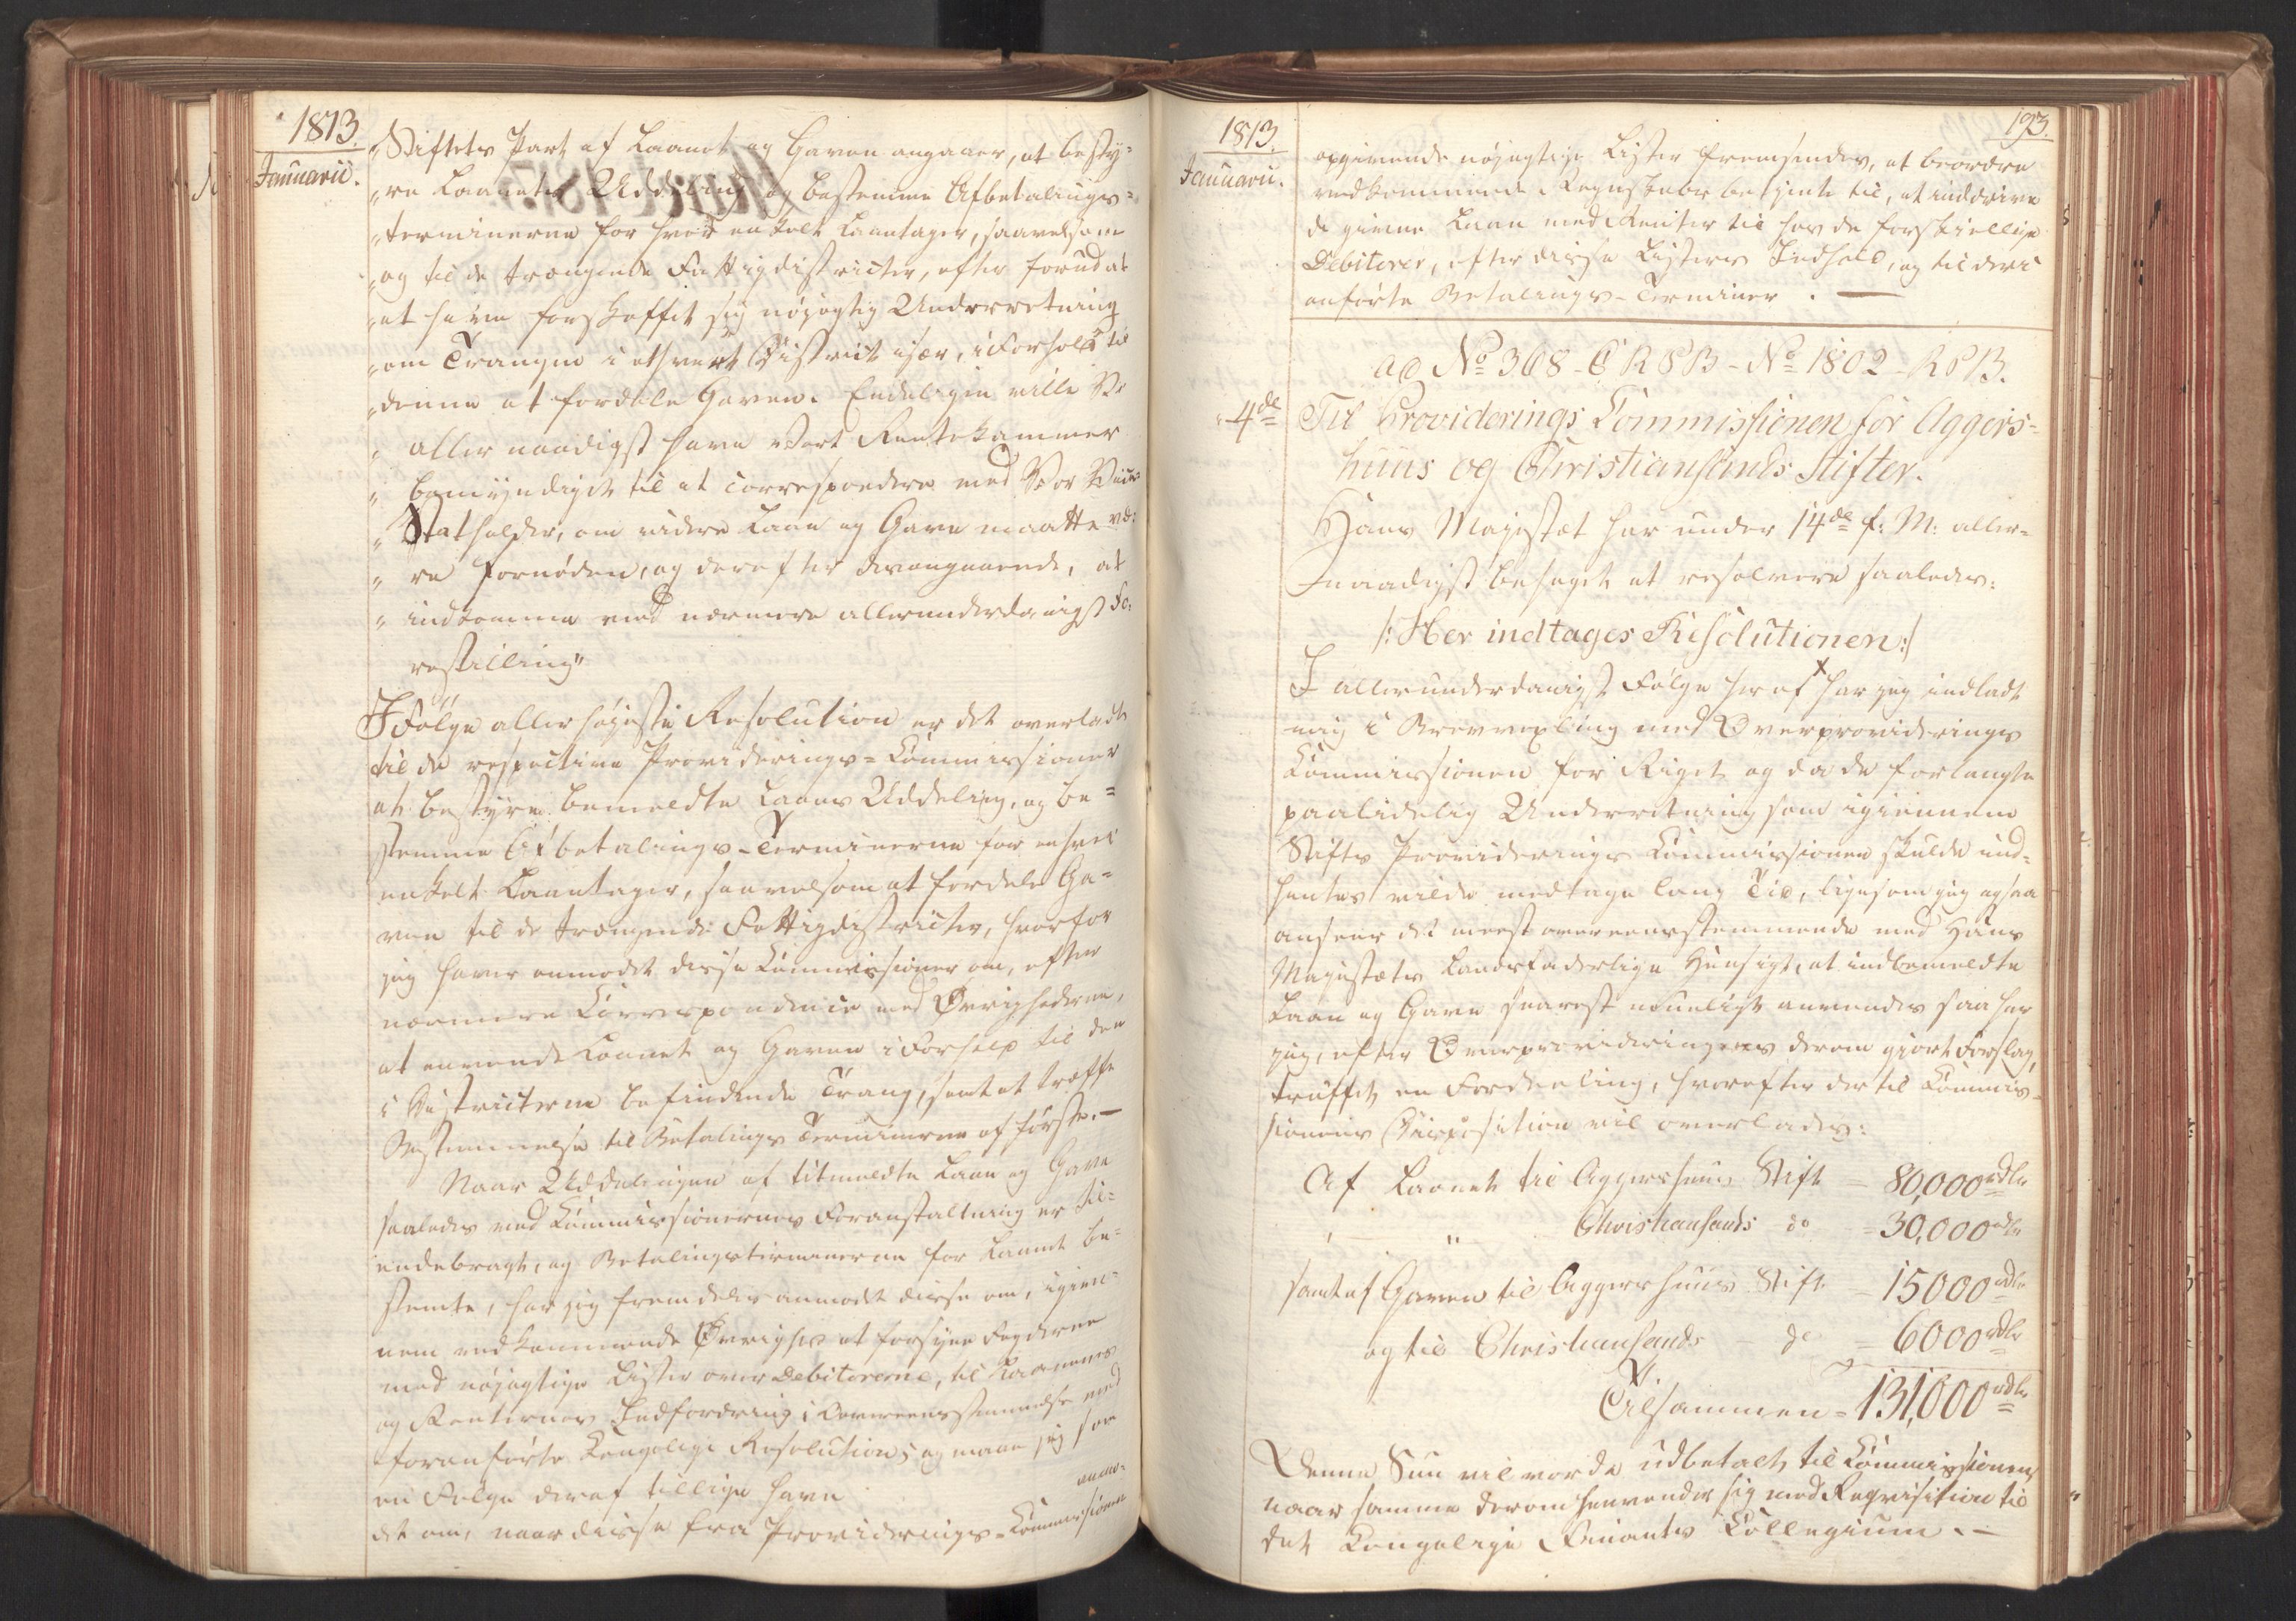 1813.
Januarii.
„Stiftets Part af Laanet og Gaven angaaer, at besty-
„re Laanets Uddeling og bestemme Afbetalings-
„terminerne for hver enkelt Laantager, saavelsom
„og til de trængende Fattigdistricter, efter forud at
„at have forskaffet sig nøjagtig Underretning
„om Trangen i ethvert District især, i Forhold til
„denne at fordele Gaven. Endeligen ville Vi
„allernaadigst have Vort Rentekammer
„bemyndiget til at correspondere med Vor Vice-
„Statholder, om videre Laan og Gave maatte væ-
„re fornøden, og derefter desangaaende, at
„indkomme med nærmere allerunderdanigst Fo-
restilling"
I Følge allerhøjeste Resolution er det overladt
til de respective Providerings-Commissioner
at bestyre bemeldte Laans Uddeling, og be-
stemme Afbetalings-Terminerne for enhver
enkelt Laantager, saavelsom at fordele Ga-
ven til de trængende Fattigdistricter, hvorfor
jeg haver anmodet disse Commissioner om, efter
nærmere Correspondence med Øvrighederne,
at anvende Laanet og Gaven i Forhold til den
i Districterne befindende Trang, samt at træffe
Bestemmelse til Betalings Terminerne af første.—
Naar Uddelingen af titmeldte Laan og Gave
saaledes ved Commissionernes Foranstaltning er til-
endebragt, og Betalingsterminerne for Laanet be-
stemte, har jeg fremdeles anmodet disse om, igien-
nem vedkommende Øvrighed at forsyne Fogderne
med nøjagtige Lister over Debitorerne, til Laanenes
og Renternes Indfordring i Overeensstemmelse med
foranførte Kongelige Resolution; og maae jeg som
en Følge deraf tillige have anmo-
det om, naar disse fra Providerings-Commissionen
1813.
Januarii.
193.
opgivende nøjagtige Lister fremsendes, at beordre
vedkommende Regnskabsbetjente til, at inddrive
de givne Laan med Renter til hos de forskiellige
Debitorer, efter disse Listers Indhold, og til deri
anførte Betalings-Terminer.—
ad No 368 - C R P B - No 1802 - R P B.
4de
Til Providerings Commissionen for Aggers-
huus og Christiansands Stifter.
Hans Majestæt har under 14de f: M: aller-
naadigst behaget at resolvere saaledes:
/: Her indtages Resolutionen :/
I allerunderdanigst Følge heraf x har jeg indladt
mig i Brevvexling med Overproviderings
Commissionen for Riget og da de forlangte
paalidelig Underretning som igiennem
Stifts Providerings Commissionen skulde ind-
hentes vilde medtage lang Tid, ligesom jeg ogsaa
anseer det meest overeensstemmende med Hans
Majestæts Landsfaderlige Hensigt, at indbemeldte
Laan og Gave snarest mueligst anvendes saa har
jeg, efter Overprovideringens derom giort Forslag,
truffet en Fordeeling, hvorefter der til Commis-
sionens Disposition vil overlades:
Af Laanet til Aggershuus Stift = 80,000 rdlr
— " Christiansands do = 30,000 rdlr
samt af Gaven til Aggershuus Stift = 15000 rdlr
og til Christiansands do = 6000 rdlr
Tilsammen = 131,000 rdlr
Denne Sum vil vorde udbetalt til Commissionen,
naar samme derom henvender sig med Reqvisition til
det Kongelige Finants Collegium.—